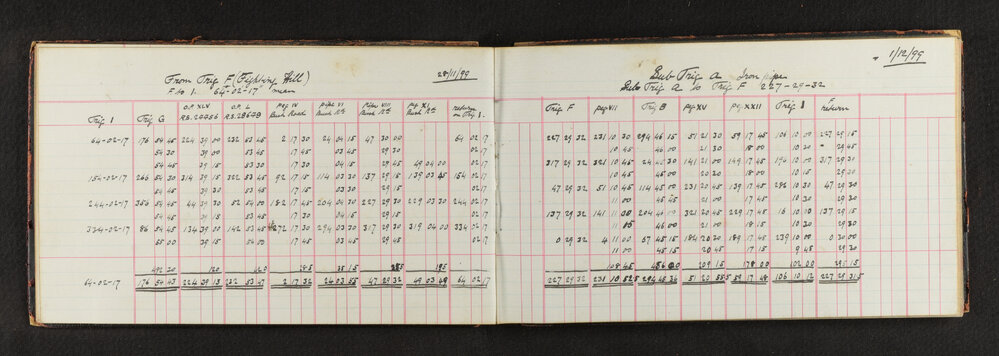 From Trig F (Fighting Hill) 28/11/99
F to I. 64-02-17 mean
Trig I Trig G O.P. XLV O.P. L peg IV pipe VI Pipe VIII peg XI return
R.B. R.B. Bush Road Bush Rd Bush Rd Bush Rd on Trig I.
64-02-17 176 54 45 224 39 00 232 53 45 2 17 30 24 04 15 47 30 00 64 02 17
54 30 39 00 53 45 17 45 03 45 29 30 02 17
54 45 39 15 53 30 17 30 04 15 29 45 49 04 00 02 17
154-02-17 266 54 30 314 39 15 322 53 45 92 17 15 114 03 30 137 29 15 139 03 45 154 02 17
54 45 39 30 53 45 17 15 03 30 29 15 02 17
244-02-17 356 54 45 44 39 30 52 54 00 182 17 45 204 04 30 227 29 30 229 03 30 244 02 17
54 45 39 15 53 45 17 30 04 15 29 15 02 17
334-02-17 86 54 45 134 39 00 142 53 45 272 17 30 294 03 30 317 29 30 319 04 00 334 02 17
55 00 39 15 54 00 17 45 03 45 29 45 02 17
492 30 120 420 285 35 15 285 195
64-02-17 176 54 43 224 39 13 232 53 47 2 17 32 24 03 55 47 29 32 49 03 49 64 02 17
1/12/99
Sub Trig A Iron pipe
Sub Trig A to Trig F 227-29-32
Trig F peg VII Trig B peg XV peg XXII Trig I F return
227 29 32 231 10 30 294 46 15 51 21 30 59 17 45 106 10 00 227 29 15
10 45 46 00 21 30 18 00 10 30 " 29 45
317 29 32 321 10 45 24 45 30 141 21 00 149 17 45 196 10 00 317 29 31
10 45 46 00 20 30 18 00 10 15 29 30
47 29 32 51 10 45 114 45 00 231 20 45 239 17 45 286 10 30 47 29 30
11 00 45 45 21 00 17 45 10 30 29 30
137 29 32 141 11 00 204 46 00 321 20 45 229 17 45 16 10 10 137 29 15
46 00 21 00 18 15 10 30 29 30
0 29 32 4 11 00 67 45 15 184 20 30 189 17 45 239 10 00 0 30 00
11 00 45 15 20 45 17 15 9 45 29 30
108 45 209 15 178 00 102 00 295 15
227 29 32 231 10 52.5 294 45 51 20 59 17 48 106 10 12 227 29 31.5